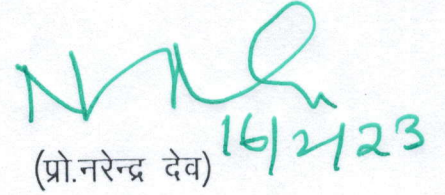 16/2/23
(प्रो.नरेन्द्र देव)